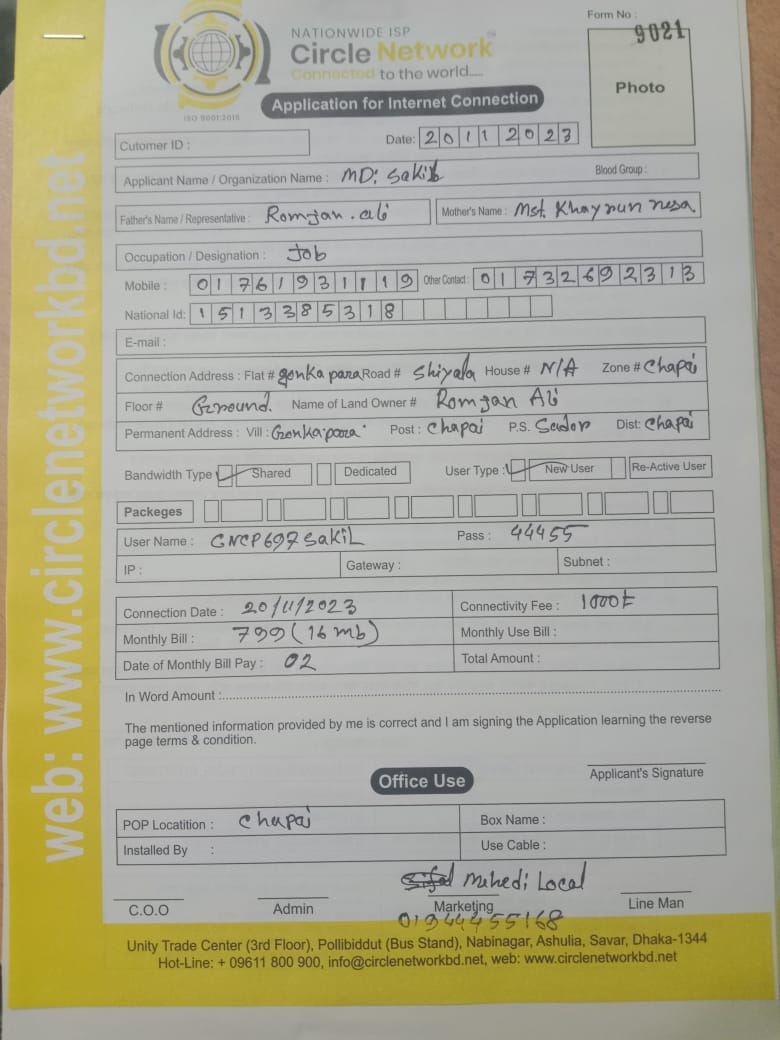 NATIONWIDE ISP
Circle Network
Connected to the world.....
ISO 9001:2015
Form No :
9021
Photo
Application for Internet Connection
Cutomer ID :
Date: 20112023
Applicant Name / Organization Name : MD: Sakib Blood Group :
Father's Name / Representative : Romjan. ali Mother's Name : Mst. Khaynun nesa
Occupation / Designation : Job
Mobile : 01761931119 Other Contact : 01732692313
National Id: 1513385318
E-mail :
Connection Address : Flat # gonka para Road # Shiyala House # N/A Zone # Chapai
Floor # Ground. Name of Land Owner # Romjan Ali
Permanent Address : Vill : Gonkapara Post : Chapai P.S. Sador Dist: Chapai
Bandwidth Type : Shared Dedicated User Type : New User Re-Active User
Packeges
User Name : CNCP697SakiL Pass : 44455
IP : Gateway : Subnet :
Connection Date : 20/11/2023 Connectivity Fee : 1000t
Monthly Bill : 799 (16 mb) Monthly Use Bill :
Date of Monthly Bill Pay : 02 Total Amount :
In Word Amount :
The mentioned information provided by me is correct and I am signing the Application learning the reverse
page terms & condition.
Applicant's Signature
Office Use
POP Locatition : Chapai Box Name :
Installed By : Use Cable :
Mehedi Local
C.O.O Admin Marketing Line Man
01944455168
Unity Trade Center (3rd Floor), Pollibiddut (Bus Stand), Nabinagar, Ashulia, Savar, Dhaka-1344
Hot-Line: + 09611 800 900, info@circlenetworkbd.net, web: www.circlenetworkbd.net
web: www.circlenetworkbd.net